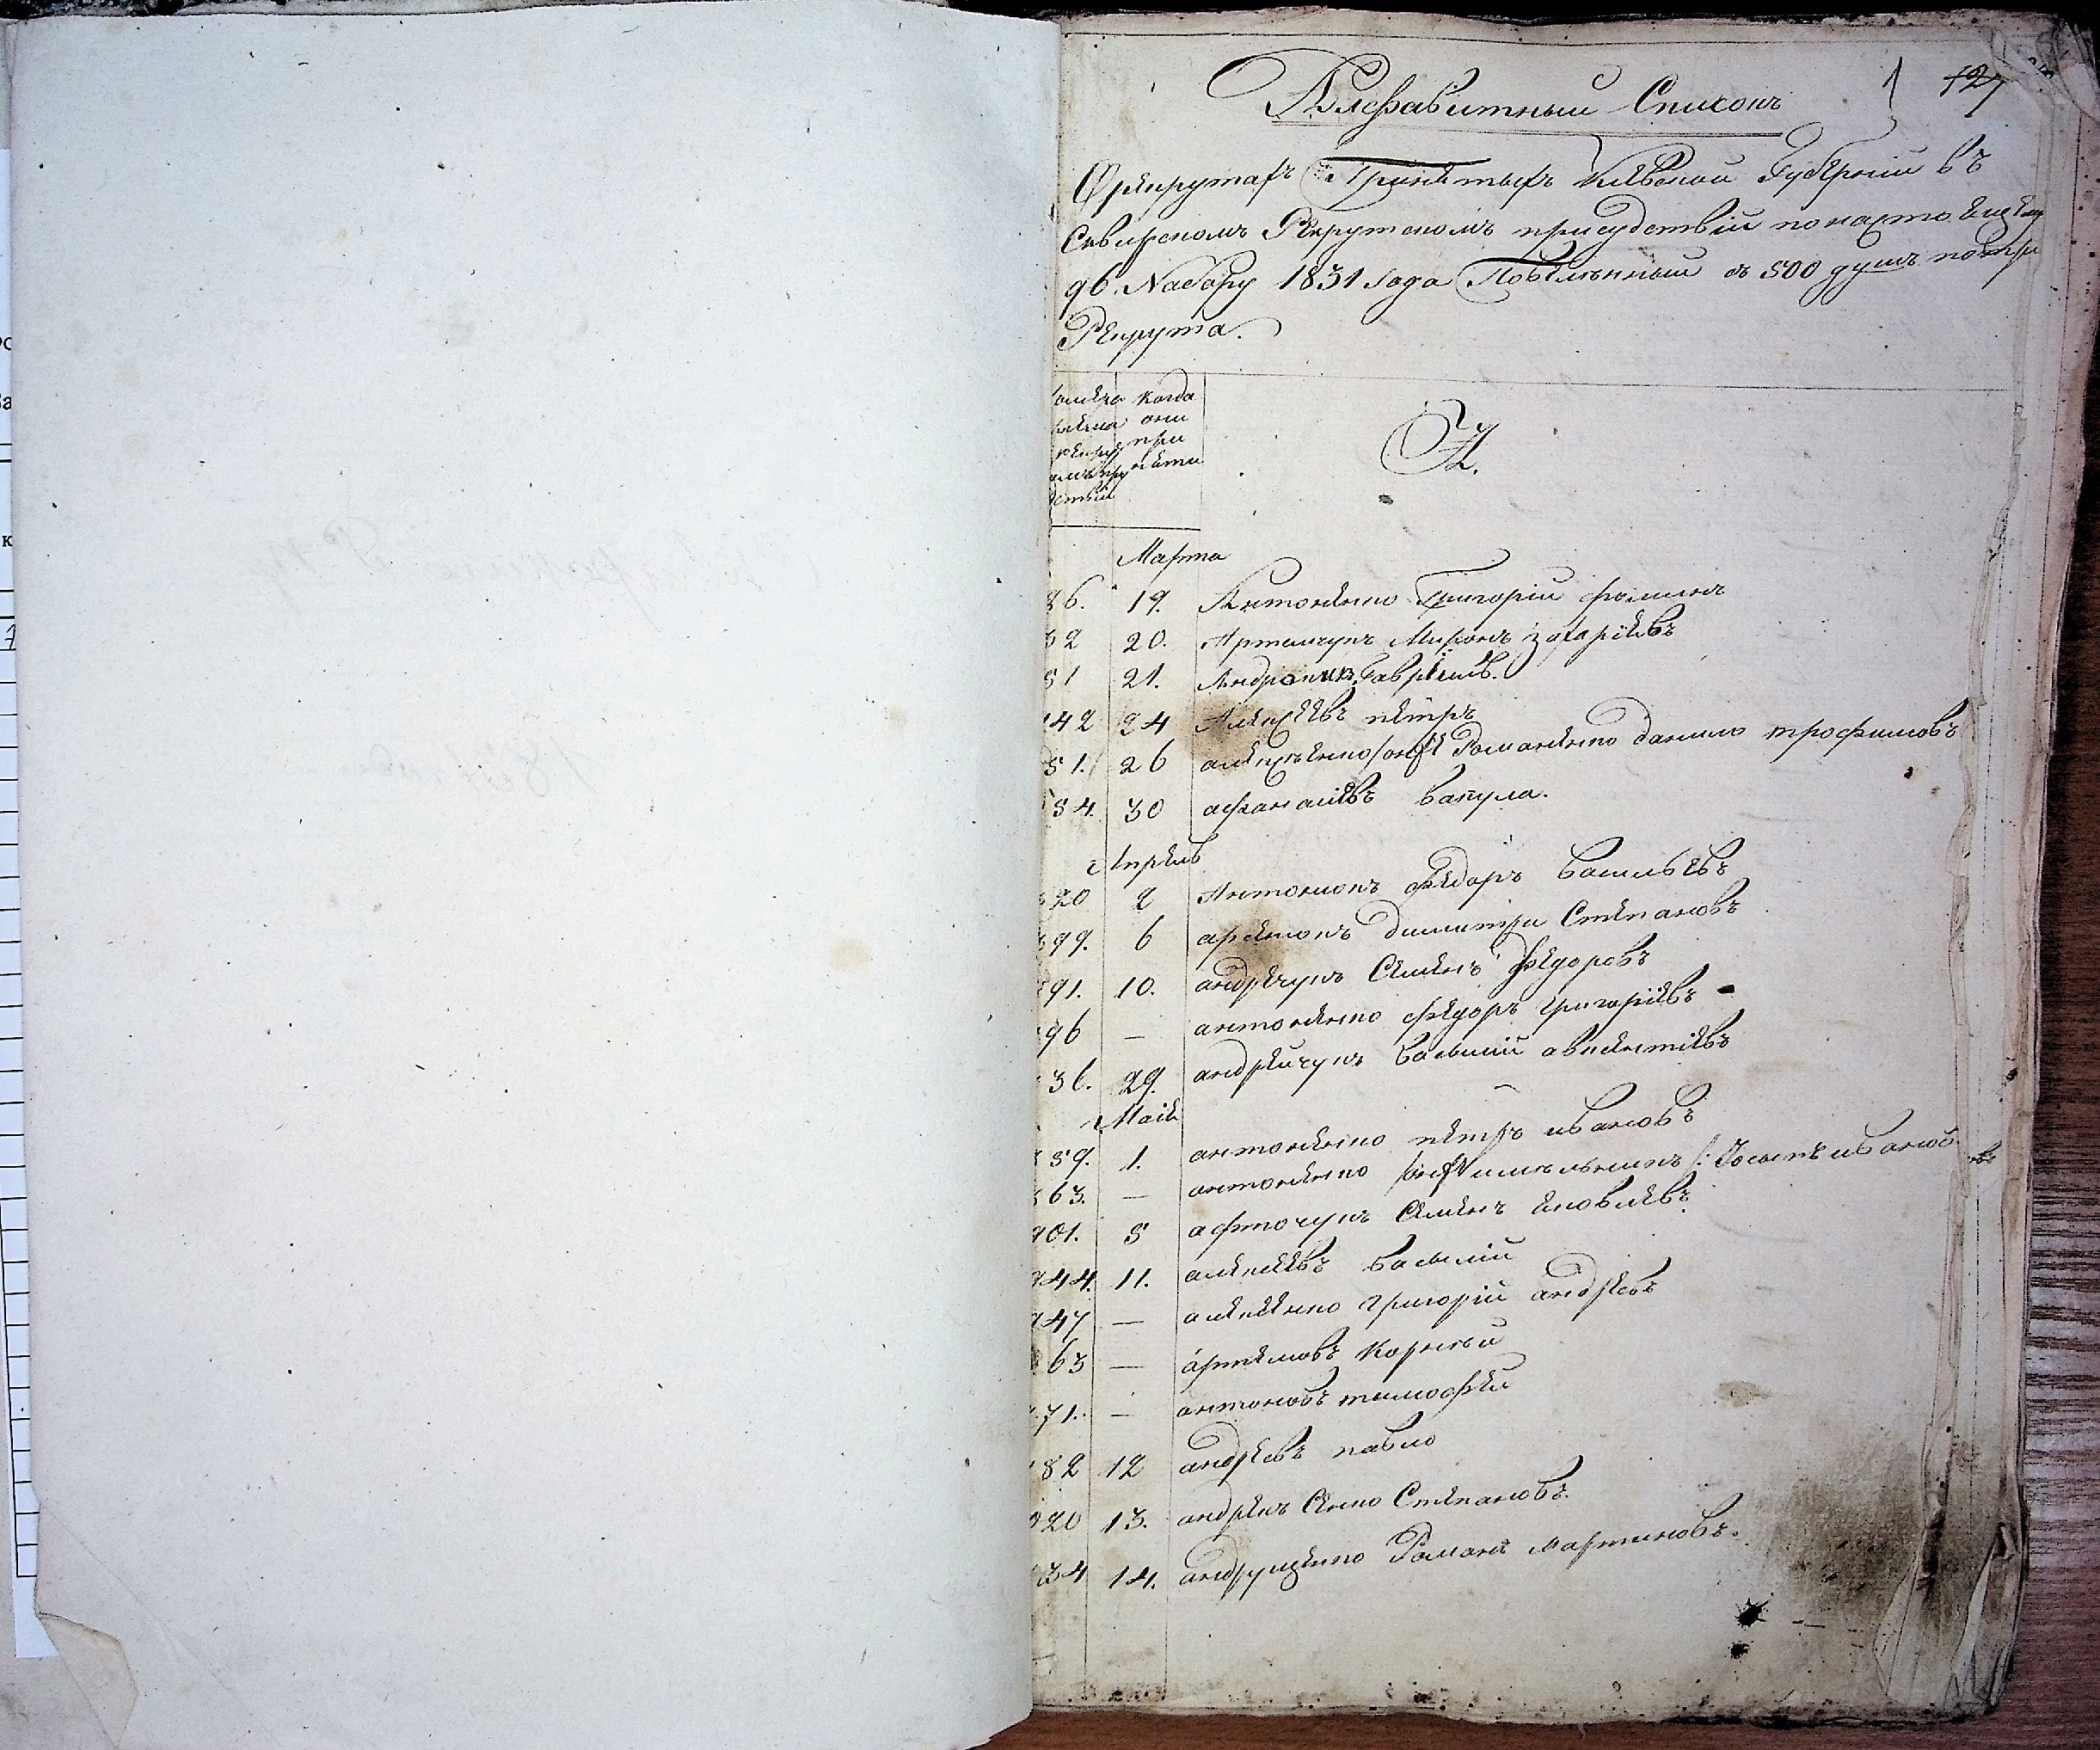 Алфавитный Списокъ
1 127
О рекрутахъ Принятыхъ Киевской Губерніи въ
Сквирскомъ Рекрутскомъ присудствіи по настоящему
96 Набору 1831 года Повелѣнный съ 500 душъ по три
Рекрута.
когда
они
при
няти
А.
Марта
86. 19. Антоненко Григорій фоминъ
32 20. Артемчукъ Миронъ захаріевъ
51 21. Андроникъ Гавріилъ.
142 24 Алексѣевъ петръ
51. 26 алексѣенко онже Романенко данило трофимовъ
54. 30 афанасіевъ вакула.
Апрель
20 2 Антонюкъ федоръ васильевъ
99. 6 арсенюкъ димитри Степановъ
91. 10. андречукъ Семенъ федоровъ
96 — антоненко федоръ григоріевъ
36. 29. андрейчукъ василій авксентіевъ
Маія
59. 1. антоненко петръ ивановъ
63. — антоненко онже мельникъ Осипъ ивановъ
901. 5 афточукъ Семенъ яковлевъ.
944. 11. алексеевъ василій
947 — алексеенко григорій андреевъ
63 — артемовъ корней
71. — антоновъ тимофей
82 12 андреевъ павло
20 13. андрекъ Сенко Степановъ.
34 14. андрущенко Романъ мартиновъ.